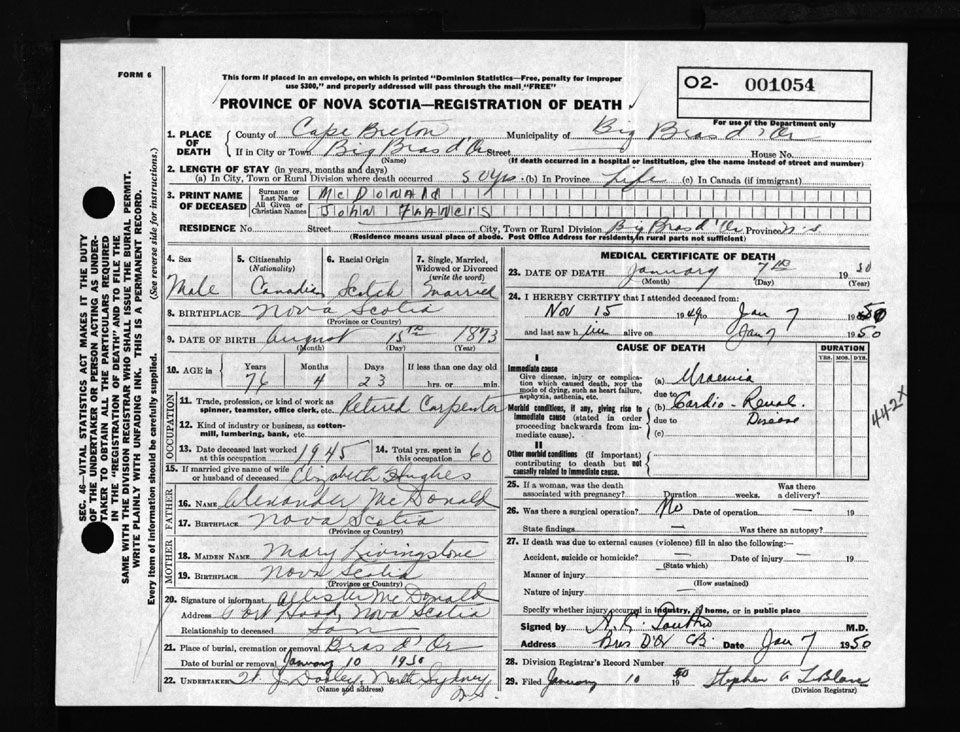 FORM 6
This form if placed in an envelope, on which is printed "Dominion Statistics—Free, penalty for improper
use $300," and properly addressed will pass through the mail "FREE"
PROVINCE OF NOVA SCOTIA—REGISTRATION OF DEATH
O2- 001054
For use of the Department only
1. PLACE OF DEATH
County of Cape Breton Municipality of Big Bras d'Or
If in City or Town Big Bras d'Or Street House No.
(Name) (If death occurred in a hospital or institution, give the name instead of street and number)
2. LENGTH OF STAY (in years, months and days)
(a) In City, Town or Rural Division where death occurred 50 yrs. (b) In Province Life (c) In Canada (if immigrant)
3. PRINT NAME OF DECEASED
Surname or Last Name McDonald
All Given or Christian Names John Francis
RESIDENCE No. Street City, Town or Rural Division Big Bras d'Or Province N.S
(Residence means usual place of abode. Post Office Address for residents in rural parts not sufficient)
4. Sex 5. Citizenship (Nationality) 6. Racial Origin 7. Single, Married, Widowed or Divorced (write the word)
Male Canadian Scotch Married
8. BIRTHPLACE Nova Scotia
(Province or Country)
9. DATE OF BIRTH August 15th 1873
(Month) (Day) (Year)
10. AGE in Years Months Days If less than one day old
76 4 23 hrs. or min.
OCCUPATION
11. Trade, profession, or kind of work as
spinner, teamster, office clerk, etc. Retired Carpenter
12. Kind of industry or business, as cotton-
mill, lumbering, bank, etc.
13. Date deceased last worked at this occupation 1945 14. Total yrs. spent in this occupation 60
15. If married give name of wife
or husband of deceased Elizabeth Hughes
FATHER
16. NAME Alexander McDonald
17. BIRTHPLACE Nova Scotia
(Province or Country)
MOTHER
18. MAIDEN NAME Mary Livingstone
19. BIRTHPLACE Nova Scotia
(Province or Country)
20. Signature of informant Allister McDonald
Address Port Hood, Nova Scotia
Relationship to deceased Son
21. Place of burial, cremation or removal Bras d'Or
Date of burial or removal January 10 1950
22. UNDERTAKER Dooley, North Sydney
(Name and address) N.S.
MEDICAL CERTIFICATE OF DEATH
23. DATE OF DEATH January 7th 1950
(Month) (Day) (Year)
24. I HEREBY CERTIFY that I attended deceased from:
Nov 15 1949 to Jan 7 1950
and last saw h im alive on Jan 7 1950
CAUSE OF DEATH DURATION
YRS. MOS. DYS.
I
Immediate cause
Give disease, injury or complica-
tion which caused death, NOT the
mode of dying, such as heart failure,
asphyxia, asthenia, etc.
(a) Uraemia
due to
Morbid conditions, if any, giving rise to
immediate cause (stated in order
proceeding backwards from im-
mediate cause).
(b) Cardio-Renal
due to Disease
(c)
442X
II
Other morbid conditions (if important)
contributing to death but not
causally related to immediate cause.
25. If a woman, was the death
associated with pregnancy? Duration weeks. Was there a delivery?
26. Was there a surgical operation? No Date of operation — 19
State findings — Was there an autopsy?
27. If death was due to external causes (violence) fill in also the following:—
Accident, suicide or homicide? — Date of injury — 19
(State which)
Manner of injury
(How sustained)
Nature of injury —
Specify whether injury occurred in industry, in home, or in public place
Signed by M.D.
Address Bras D'Or CB. Date Jan 7 1950
28. Division Registrar's Record Number
29. Filed January 10 1950 Stephen A LeBlanc
(Division Registrar)
SEC. 46—VITAL STATISTICS ACT MAKES IT THE DUTY
OF THE UNDERTAKER OR PERSON ACTING AS UNDER-
TAKER TO OBTAIN ALL THE PARTICULARS REQUIRED
IN THE "REGISTRATION OF DEATH" AND TO FILE THE
SAME WITH THE DIVISION REGISTRAR WHO SHALL ISSUE THE BURIAL PERMIT.
WRITE PLAINLY WITH UNFADING INK. THIS IS A PERMANENT RECORD.
Every item of information should be carefully supplied. (See reverse side for instructions.)